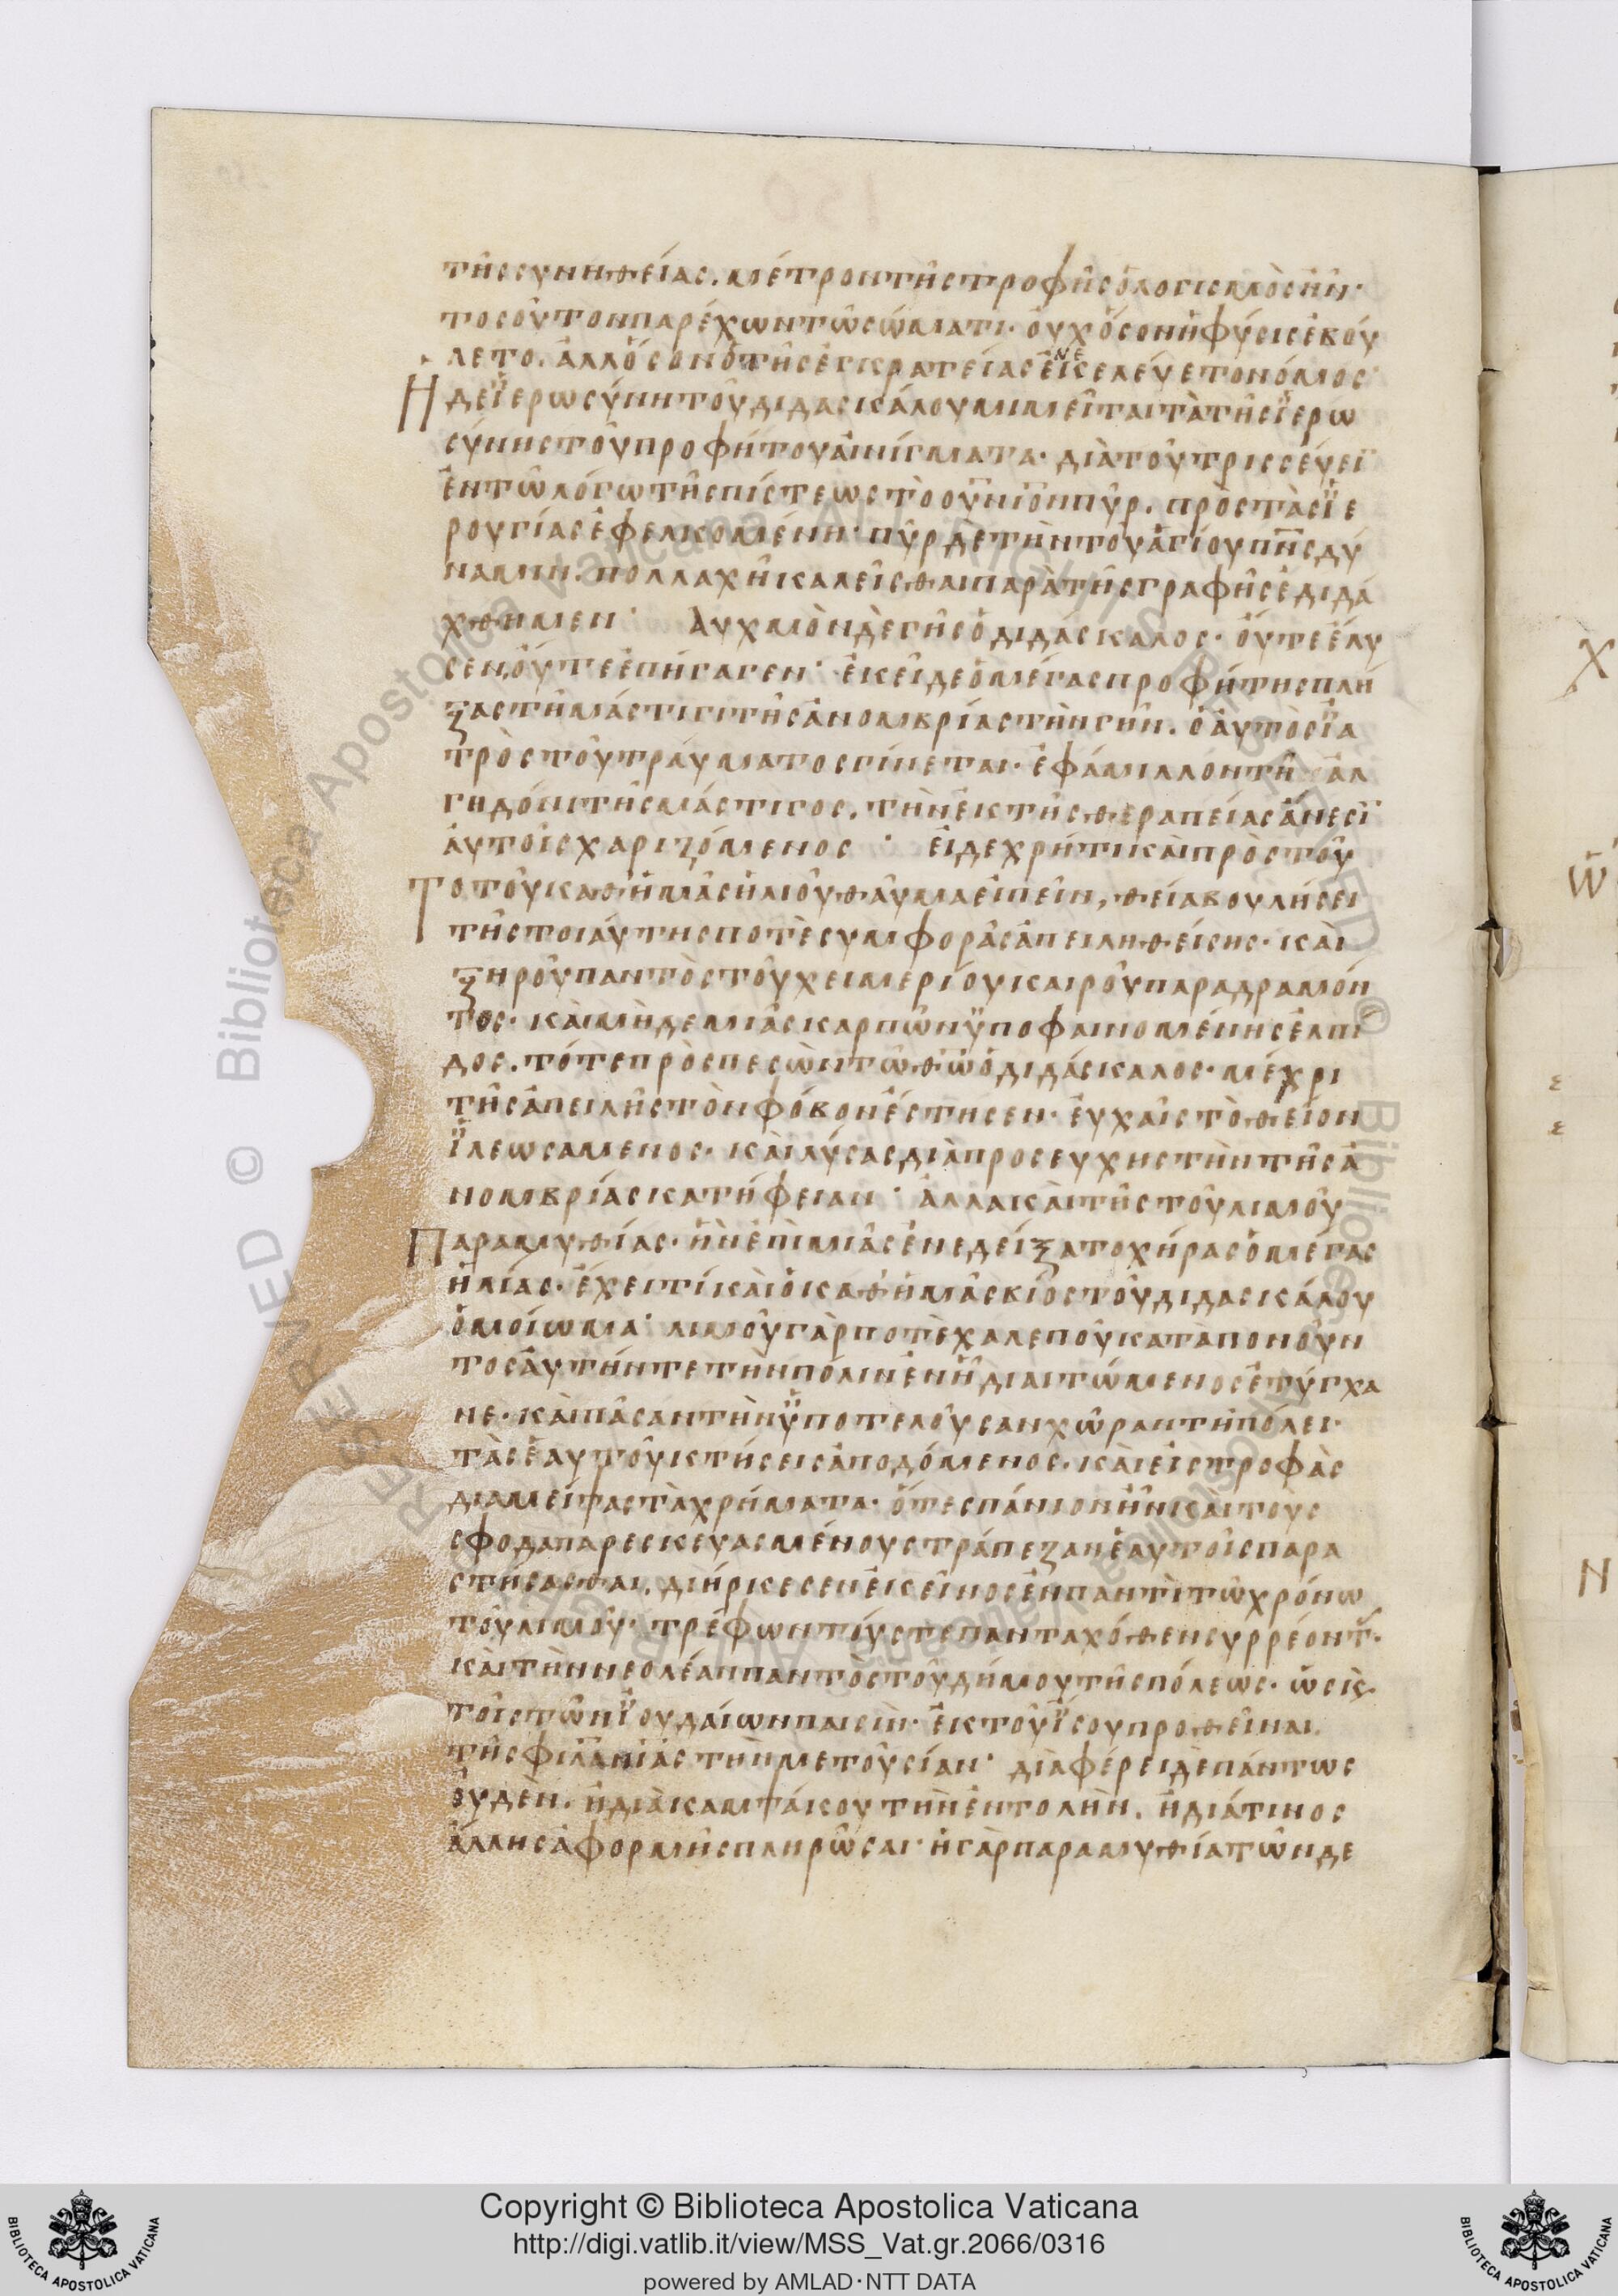 τῆς συνηθείας. μέτρον τῆς τροφῆς ὁ λογισμὸς ἦν·
τοσοῦτον παρέχων τῶ σώματι· οὐχ ὅσον ἡ φύσις ἐβού
λετο. ἀλλ ὅσον ὁ τῆς ἐγκρατείας ἐνεκελεύετο νόμος·
Η δε ϊερωσύνη τοῦ διδασκάλου μιμεῖται τὰ τῆς ϊερω
σύνης τοῦ προφήτου αἰνίγματα· διὰ τοῦ τρισσεύει
ἐν τῶ λόγω τῆς πίστεως τὸ οὐνιον πῦρ. πρὸς τὰς ϊε
ρουγίας ἐφελκομένη· πῦρ δὲ τὴν τοῦ ἁγίου πνς δύ
ναμιν. πολλαχῆ καλεῖσθαι παρὰ τῆς γραφῆς ἐδιδά
χθημεν· Αυχμὸν δὲ γῆς ὁ διδάσκαλος· οὔτε ἔλυ
σεν, οὔτε ἐπήγαγεν· ἐκεῖ δε ὁ μέγας προφήτης πλή
ξας τῆ μάστιγι τῆς ἀνομβρίας τὴν γῆν. ὁ ἀυτὸς ϊα
τρὸς τοῦ τραύματος γίνεται· ἐφάμιλλον τῆ ἀλ
γηδόνι τῆς μάστιγος. τὴν ἐκ τῆς θεραπείας ἄνεσϊ
ἀυτοῖς χαριζόμενος · ἐι δε χρή τι καὶ πρὸς τοῦ
Το τοῦ καθ ἡμᾶς ηλιοῦ θαῦμα ἐιπεῖν, θεία βουλήσει
τῆς τοιάυτης ποτὲ συμφορᾶς ἀπειληθείσης· καὶ
ξηροῦ παντὸς τοῦ χειμερίου καιροῦ παραδραμόν
τος· καὶ μηδεμιᾶς καρπῶν ϋποφαινομένης ἐλπί
δος. τότε πρὸσπεσὼν τῶ θῶ ὁ διδάσκαλος· μέχρι
τῆς ἀπειλῆς τὸν φόβον ἔστησεν· ἐυχαῖς τὸ θεῖον
ϊλεωσαμενος· καὶ λύσας διὰ προσευχης τὴν τῆς ἀ
νομβρίας κατήφειαν · ἀλλα καὶ τῆς τοῦ λιμοῦ
Παραμυθίας· ἣν ἐπὶ μιᾶς ἐνεδείξατο χήρας ὁ μέγας
ἡλίας· ἔχει τί καὶ ὁ καθ ἡμᾶς κίος τοῦ διδασκάλου
ὁμοίωμα· λιμοῦ γὰρ ποτὲ χαλεποῦ κατὰπονοῦν
τος ἀυτήν τε τὴν πόλιν ἐν ἧ διαιτώμενος ἐτύγχα
νε· καὶ πᾶσαν τὴν ϋποτελοῦσαν χῶραν τῆ πόλει·
τὰς ἑαυτοῦ κτήσεις ἀποδόμενος. καὶ εἰς τροφὰς
διαμείψας τὰ χρήματα· ὅτε σπάνιον ἦν καὶ τοὺς
σφοδα παρεσκευασμένους τράπεζαν ἑαυτοῖς παρα
στήσασθαι. διήρκεσεν ἐκεῖνος ἐν παντὶ τῶ χρόνω
τοῦ λιμοῦ· τρέφων τούς τε πανταχόθεν συρρέοντ·
καὶ τὴν νεολέαν παντὸς τοῦ δήμου τῆς πόλεως· ὡς ϊς·
τοῖς τῶν ϊουδαίων παισὶν· ἐκ τοῦ ϊσου προθεῖναι
τῆς φιλανιὰς τὴν μετοῦσίαν· διὰφέρει δὲ πάντως
οὐδὲν. ἢ διὰ καμψάκου τὴν ἐντολὴν. ἢ διά τινος
ἄλλης ἀφορμῆς πληρῶσαι· ἡ γὰρ παραμυθία τῶν δε